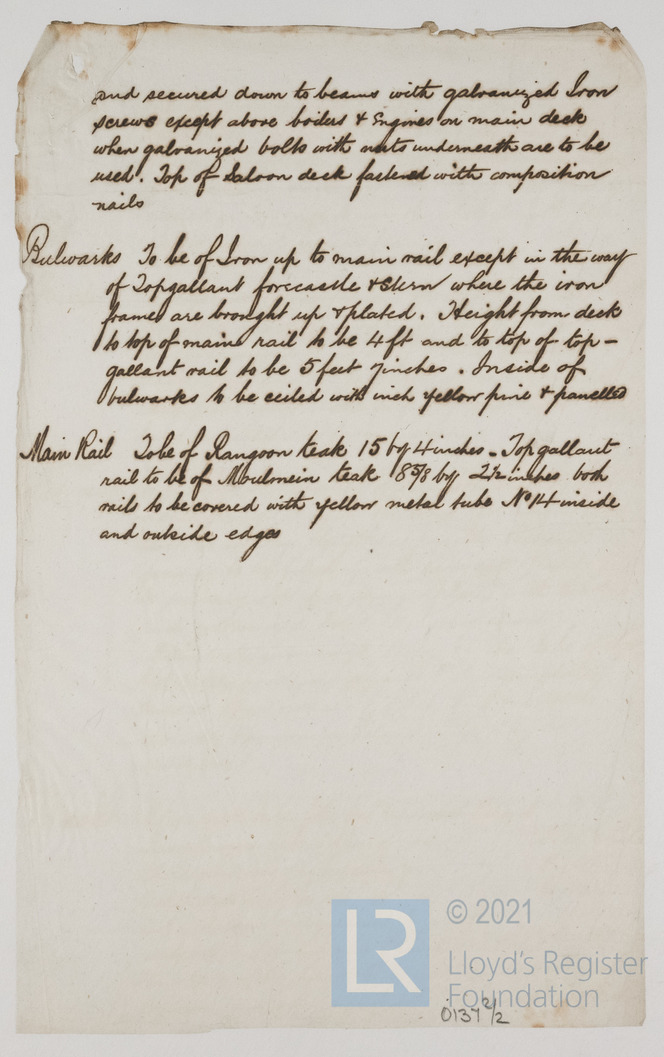 and secured down to beams with galvanized Iron
screws except above boilers & Engines on main deck
when galvanized bolts with nuts underneath are to be
used. Top of Saloon deck fastened with composition
nails
Bulwarks To be of Iron up to main rail except in the way
of Topgallant forecastle & Stern where the iron
frames are brought up & plated. Height from deck
to top of main rail to be 4 ft and to top of top-
gallant rail to be 5 feet 7 inches. Inside of
bulwarks to be ceiled with inch yellow pine & panelled
Main Rail To be of Rangoon teak 15 by 4 inches - Topgallant
rail to be of Moulmein teak 8 5/8 by 2 1/2 inches both
rails to be covered with yellow metal tube No 14 inside
and outside edges
LR
© 2021
Lloyd's Register
Foundation
0137 2/2